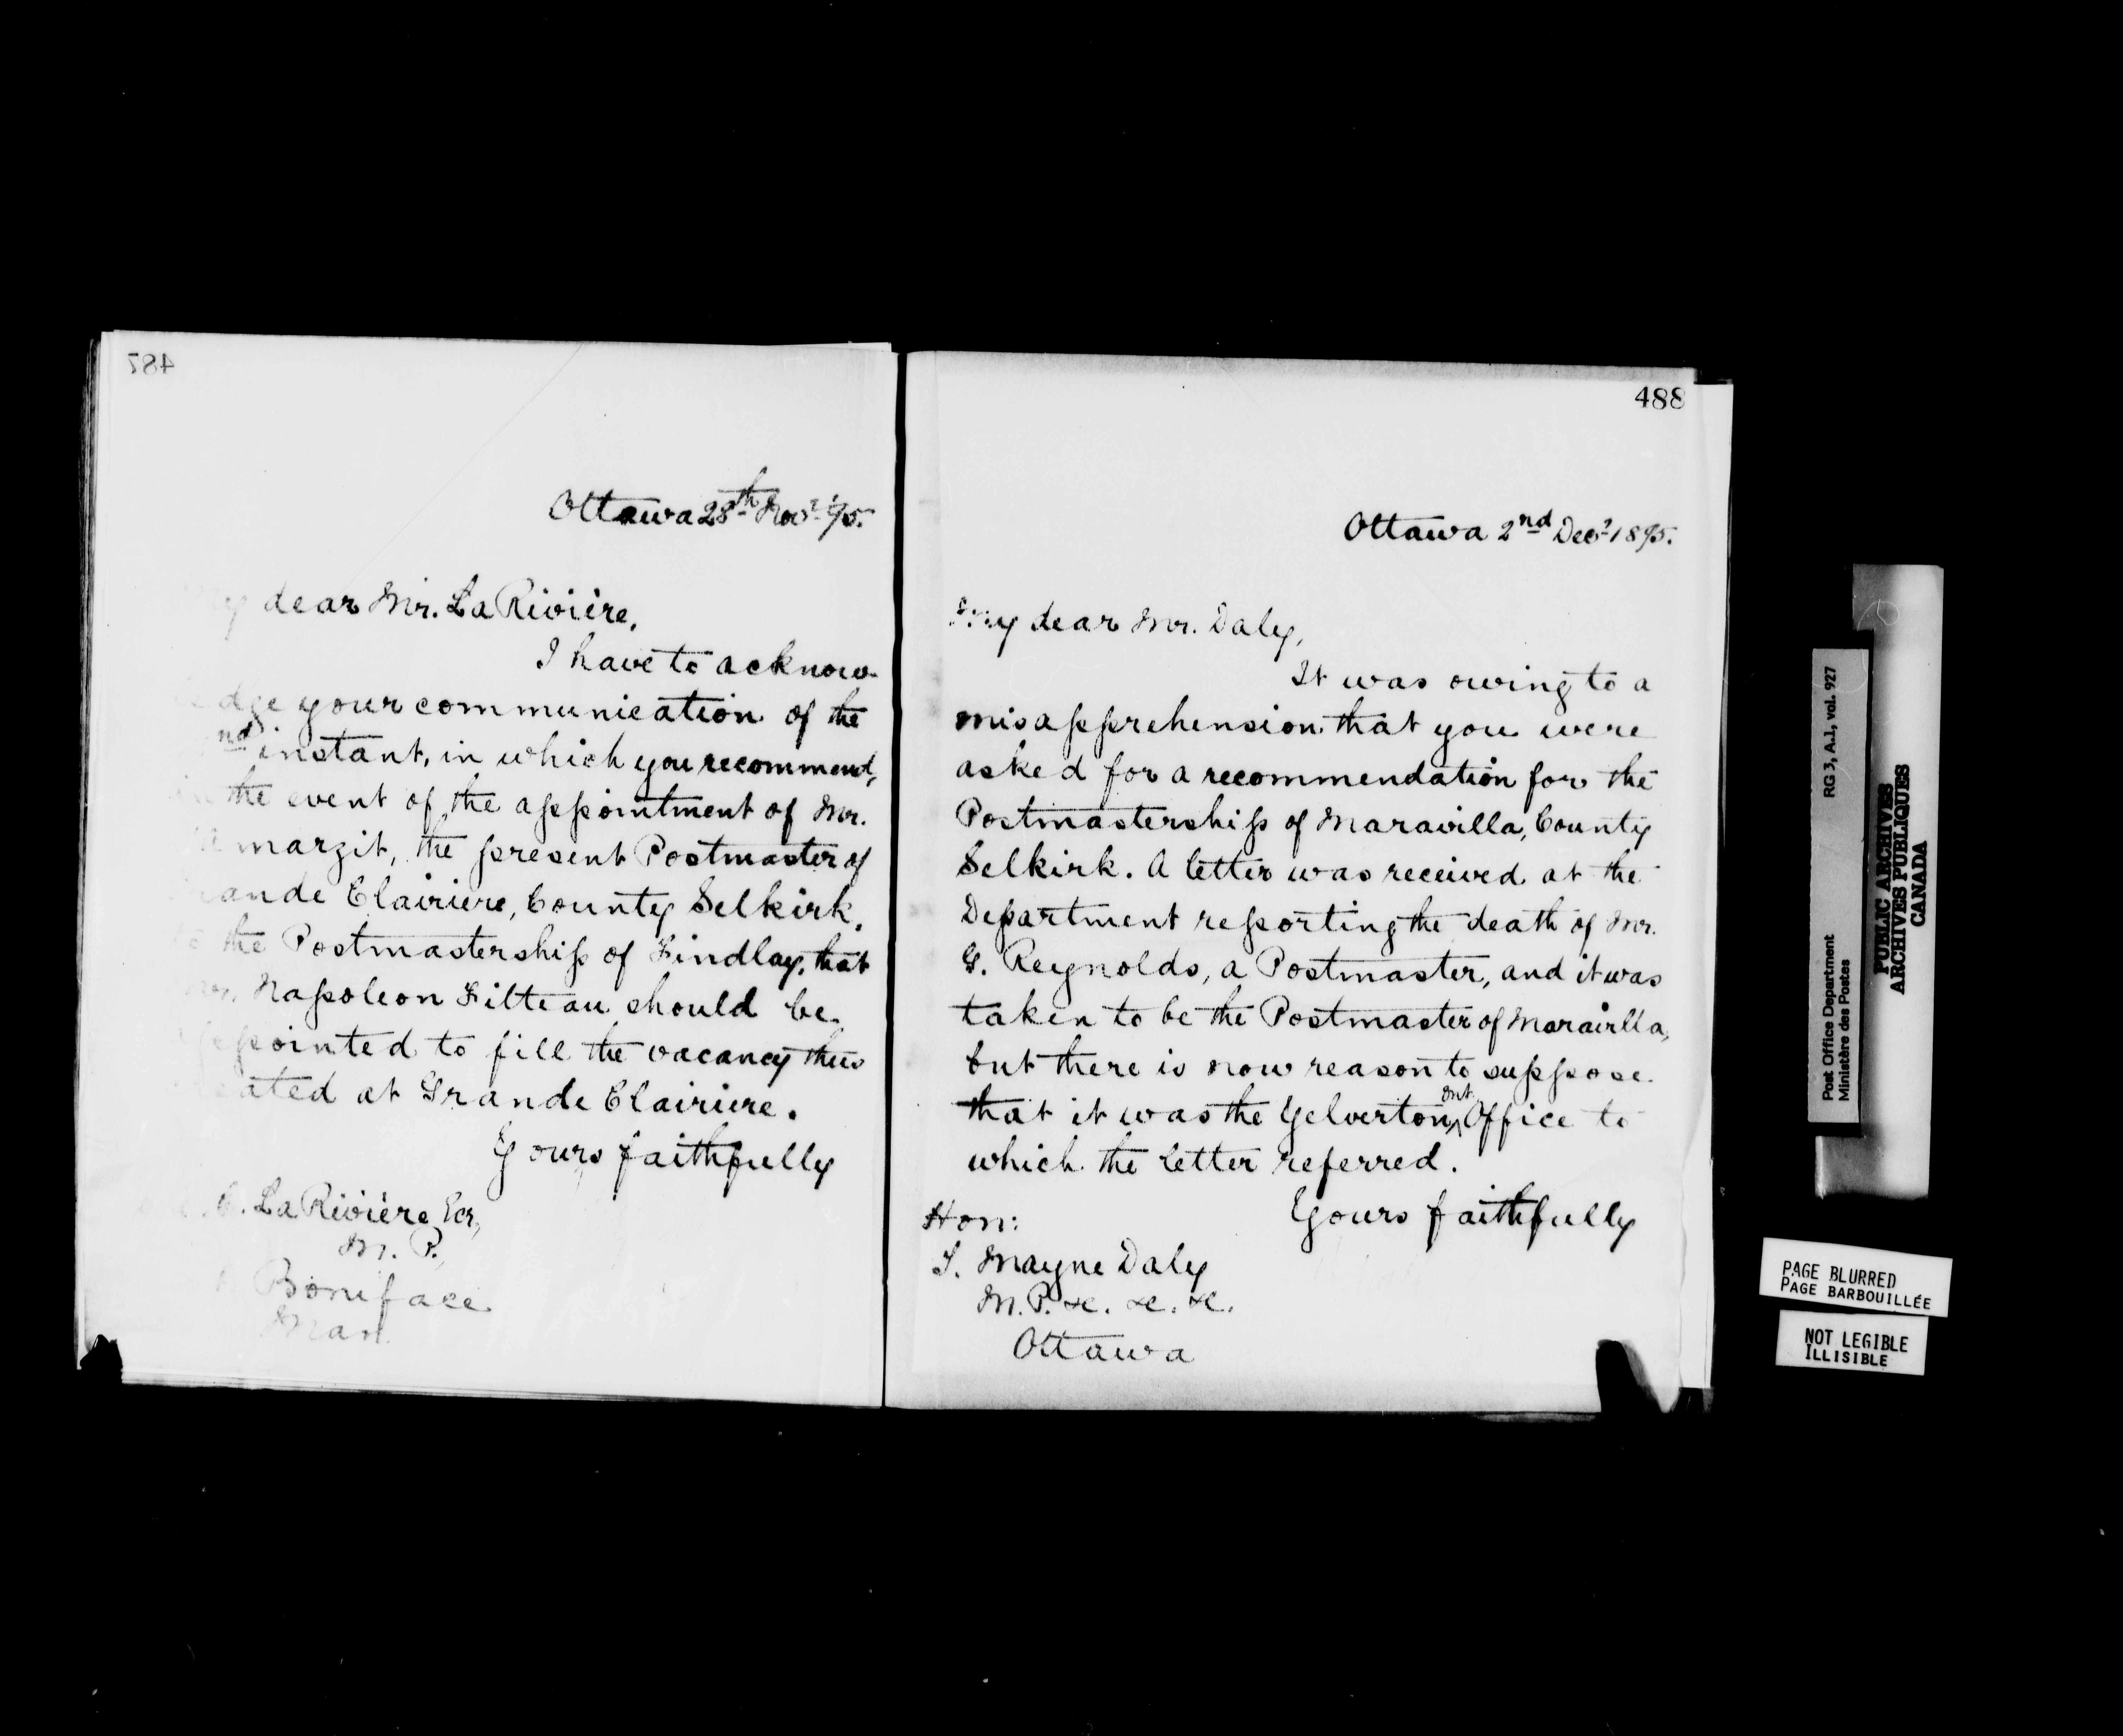 487
Ottawa 28th Novr '95.
My dear Mr. La Rivière,
I have to acknow-
ledge your communication of the
nd instant, in which you recommend,
in the event of the appointment of Mr.
marzit, the present Postmaster of
Grande Clairiere, County Selkirk,
to the Postmastership of Findlay, that
Mr. Napoleon Filteau should be
appointed to fill the vacancy thus
created at Grande Clairiere.
Yours faithfully
C. La Rivière, Esq,
M. P.
Boniface
Man.
488
Ottawa 2nd Decr 1895.
My dear Mr. Daly,
It was owing to a
misapprehension that you were
asked for a recommendation for the
Postmastership of Maravilla, County
Selkirk. A letter was received at the
Department reporting the death of Mr.
G. Reynolds, a Postmaster, and it was
taken to be the Postmaster of Maravilla,
but there is now reason to suppose
that it was the Yelverton, Ont. Office to
which the letter referred.
Yours faithfully
Hon:
T. Mayne Daly
M. P. &c. &c. &c.
Ottawa
Post Office Department RG 3, A.1, vol. 927
Ministère des Postes
PUBLIC ARCHIVES
ARCHIVES PUBLIQUES
CANADA
PAGE BLURRED
PAGE BARBOUILLÉE
NOT LEGIBLE
ILLISIBLE